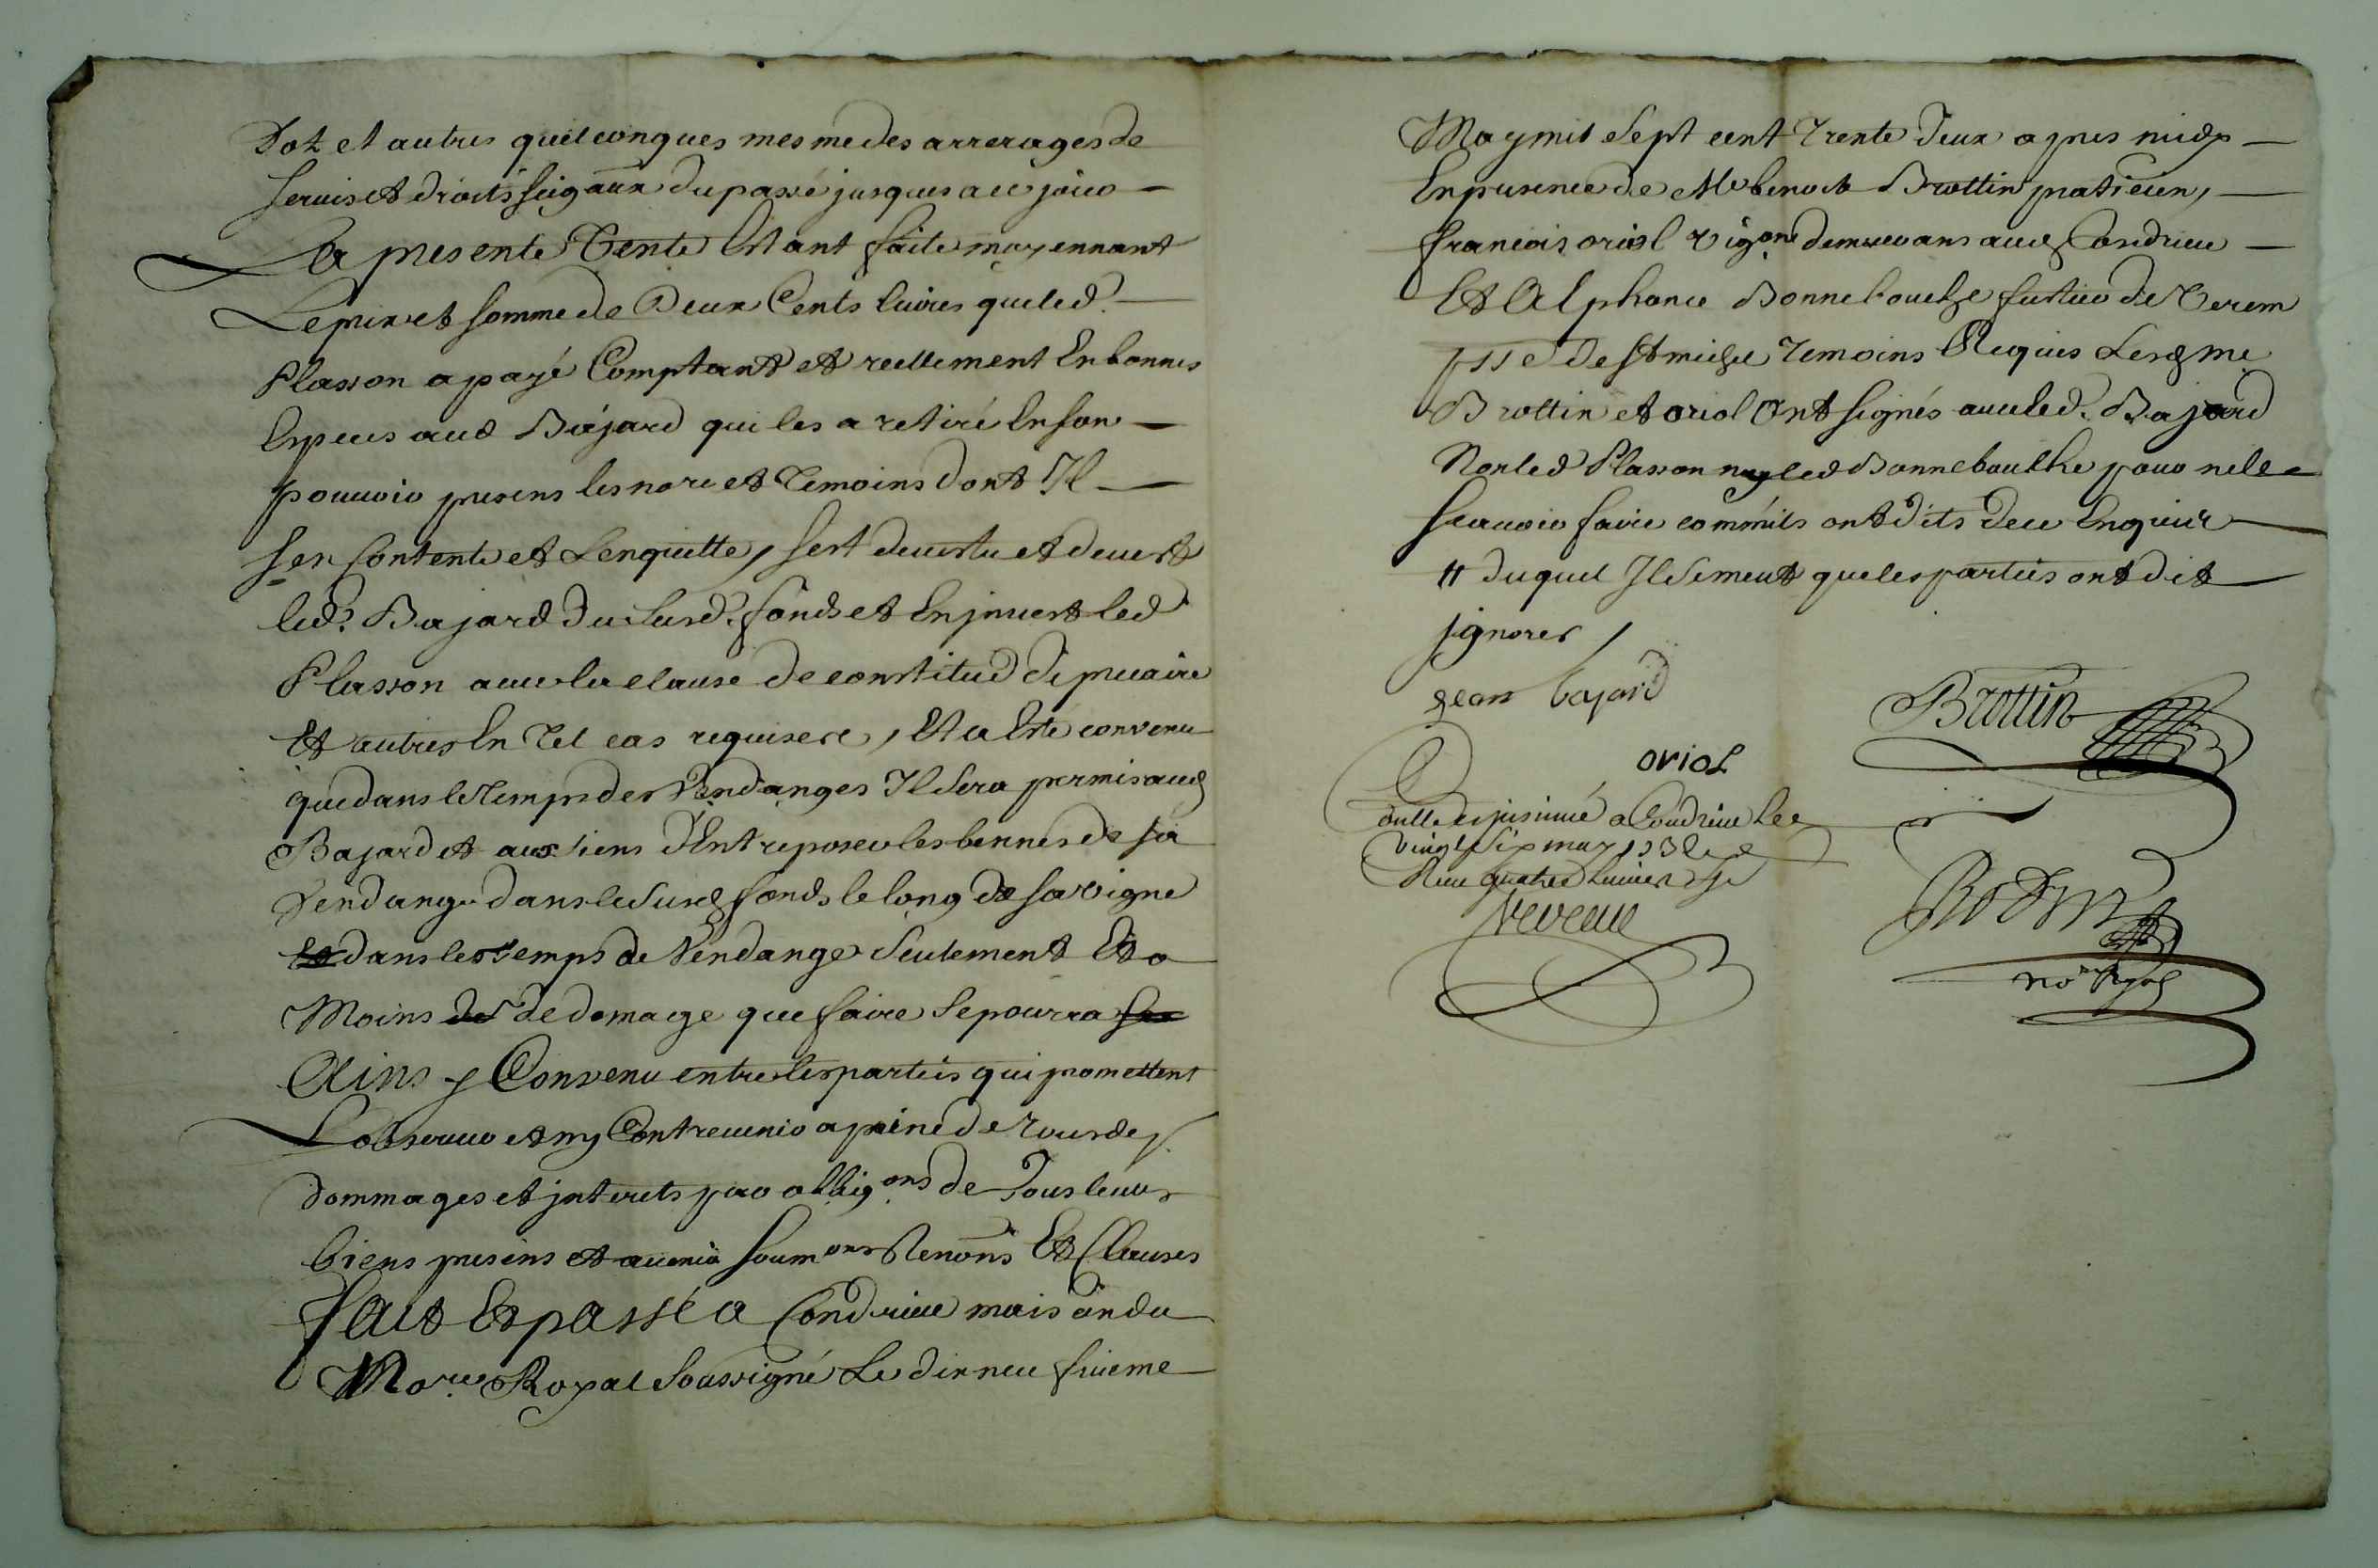 Dot et autres quelconques mesme des arrerages de
servis et droits seigaux du passé jusques a ce jour
La presente Vente Estant faite moyennant
Le prix et somme de Deux Cents livres que led.
Plasson a payé Comptant et reellement En bonnes
Especes aud Bajard qui les a retiré En son
pouvoir presens les nore et Temoins dont Il
s'en Contente et L'en quitte, s'est devestu et devest
led. Bajard du susd. fonds et En jnvest led
Plasson avec la clause de constitud de precaire
Et autres En Tel cas requises, Et a Esté convenu
que dans le Temps des Vendanges Il sera permis aud
Bajard et aux siens d'Entreposer les bennes de sa
Vendange dans le susd fonds le long de sa vigne
Et dans les Temps de Vendange seulement Et a
Moins de de domage que faire se pourra
Ains Convenu entre les parties qui promettent
L'observer et ny Contrevenir a peine de Tous d
dommages et jnterets par obligons de Tous leurs
biens presens et avenir soumons Renons Et Clauses
Fait Et passé a Condrieu maison du
Nore Royal soussigné Le dix neufvieme
May mil sept cent Trente deux apres midy
En presence de Me benoit Brottin praticien,
francois oriol vigon demeurans aud Condrieu
Et Alphonce Bonnebouche de Verem
psse de St michel Temoins Requis Lesd me
Brottin et oriol Ont signés avec led. Bajard
Non led Plasson ny led Bonnebouche pour ne le
scavoir faire comm'ils ont dits de ce Enquis
# duquel Il se meut que les parties ont dit
jgnorer /
jean bajard
Brottin
oriol
Controllé et jnsinué a Condrieu Le
vingt six may 1732
Reçu quatre livres
Neveu
nore Royal